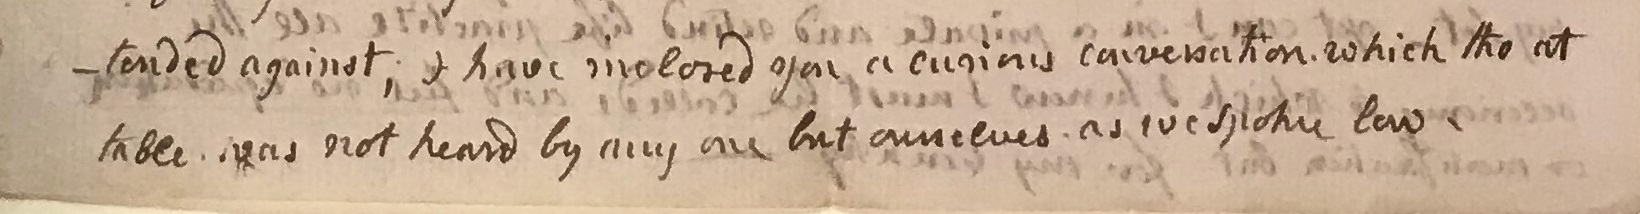 -tended against; I have inclosed you a curious conversation. which tho at
table. was not heard by any one but ourselves. as we spoke low.